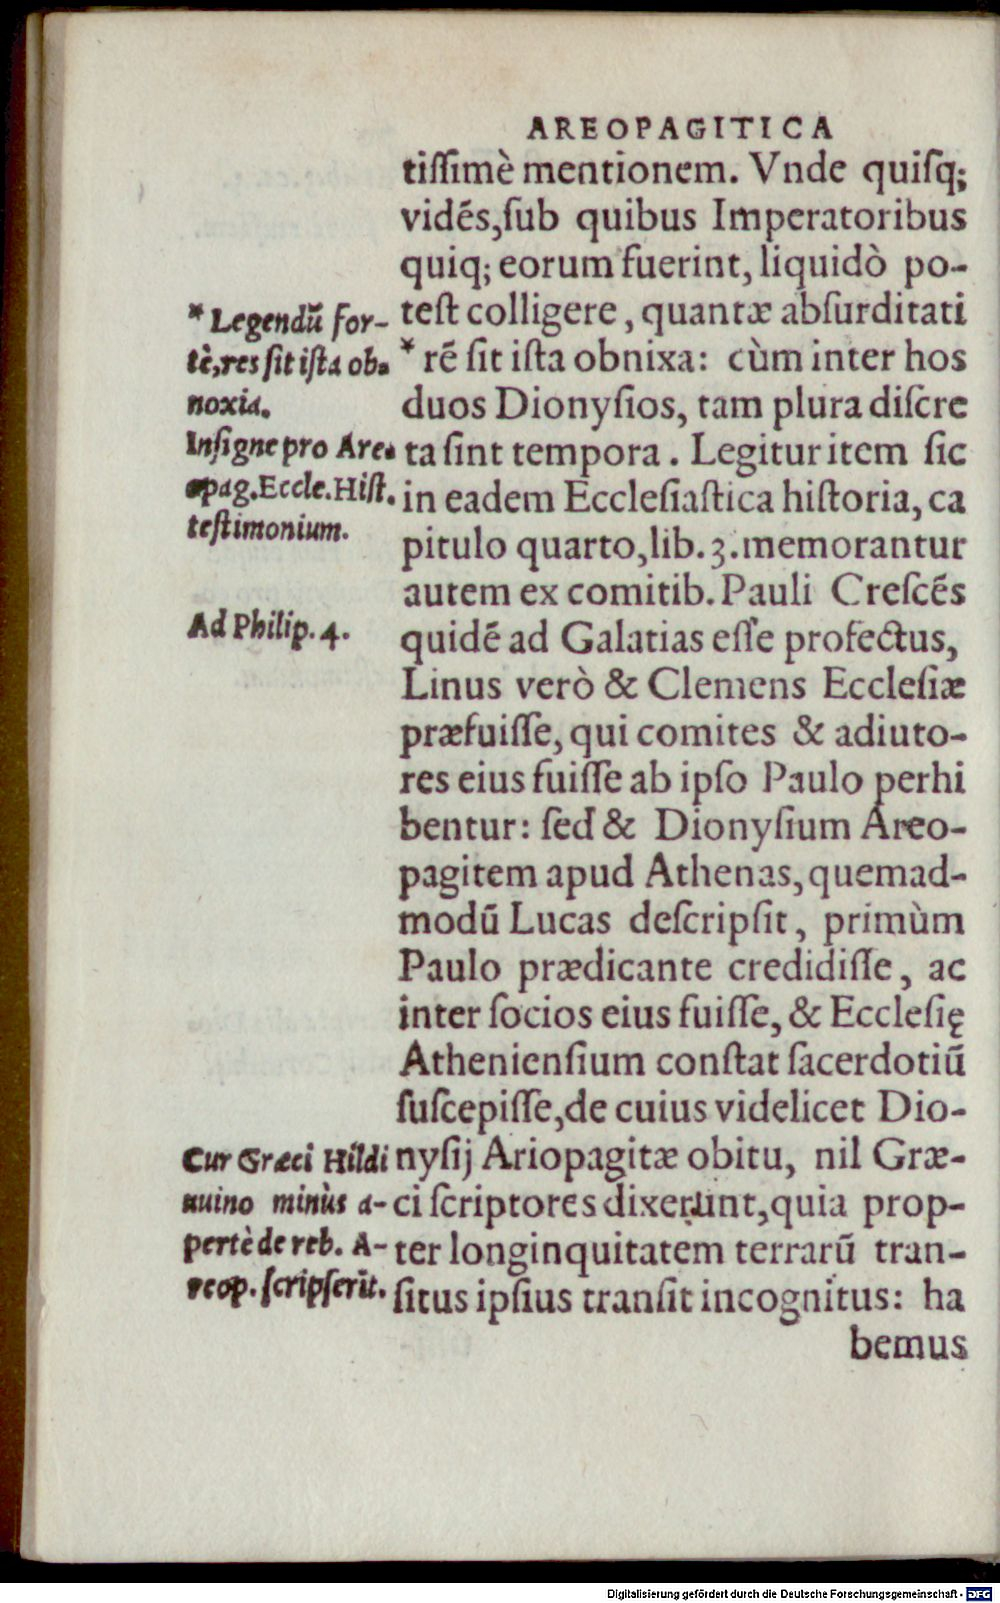 AREOPAGITICA
tiſſimè mentionem. Vnde quiſq;
vidẽs,ſub quibus Imperatoribus
quiq; eorum fuerint, liquidò po-
teſt colligere, quantæ abſurditati
* rẽ ſit iſta obnixa: cùm inter hos
duos Dionyſios, tam plura diſcre
ta ſint tempora. Legitur item ſic
in eadem Eccleſiaſtica hiſtoria, ca
pitulo quarto,lib.3.memorantur
autem ex comitib. Pauli Creſcẽs
quidẽ ad Galatias eſſe profectus,
Linus verò & Clemens Eccleſiæ
præfuiſſe, qui comites & adiuto-
res eius fuiſſe ab ipſo Paulo perhi
bentur: ſed & Dionyſium Areo-
pagitem apud Athenas, quemad-
modũ Lucas deſcripſit, primùm
Paulo prædicante credidiſſe, ac
inter ſocios eius fuiſſe, & Eccleſię
Athenienſium conſtat ſacerdotiũ
ſuſcepiſſe,de cuius videlicet Dio-
nyſij Ariopagitæ obitu, nil Græ-
ci ſcriptores dixerunt,quia prop-
ter longinquitatem terrarũ tran-
ſitus ipſius tranſit incognitus: ha
bemus
* Legendũ for-
tè,res ſit iſta ob-
noxia.
Inſigne pro Are-
opag.Eccle.Hiſt.
teſtimonium.
Ad Philip.4.
Cur Græci Hildi
nuino minùs a-
pertè de reb. A-
reop. ſcripſerũt.
Digitalisierung gefördert durch die Deutsche Forschungsgemeinschaft - DFG